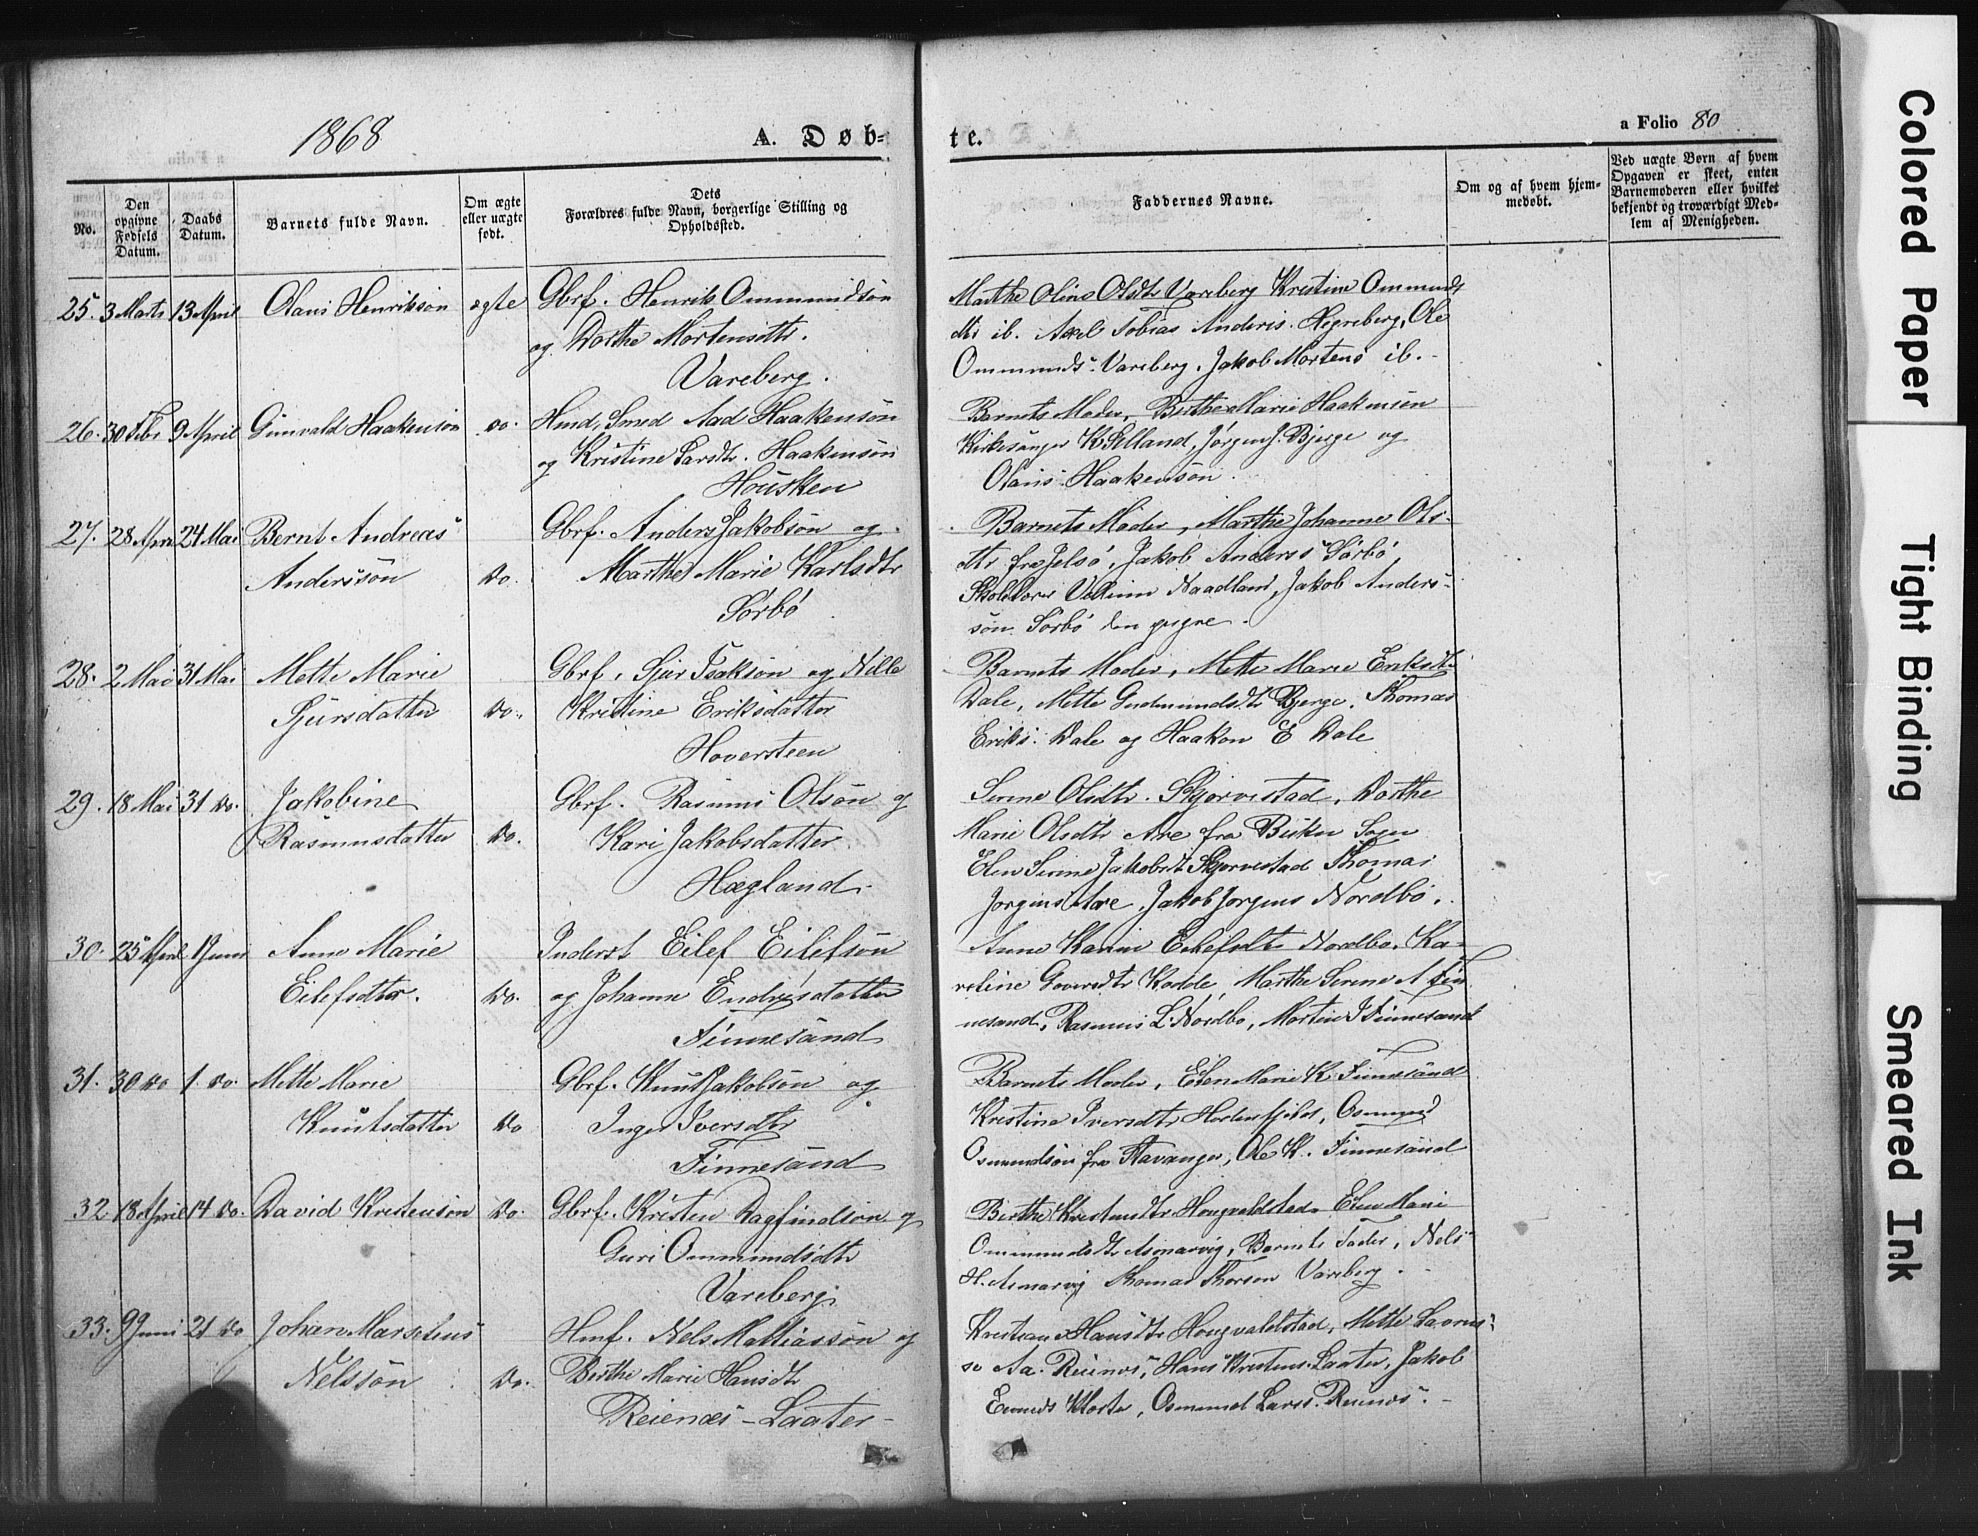 1868
A. Døb-
te.
a Folio 80
No.
Den opgivne Fødsels Datum.
Daabs Datum.
Barnets fulde Navn.
Om ægte eller uægte født.
Dets Forældres fulde Navn, borgerlige Stilling og Opholdssted.
Faddernes Navne.
Om og af hvem hjemmedøbt.
Ved uægte Børn af hvem Opgaven er skeet, enten Barnemoderen eller hvilket bekjendt og troværdigt Medlem af Menigheden.
25. 3 Marts 13 April Olaus Henriksøn ægte Gbrf. Henrik Ommundsøn
og Dorthe Mortensdtr.
Vareberg.
Marthe Oline Olsdtr Vareberg Kristine Ommunds
dtr ib. Axel Tobias Anders. Hegreberg, Ole
Ommunds. Vareberg. Jakob Mortens ib.
26. 30 Febr 9 April Gunvald Haakensøn do. Hmd. Smed Aad Haakensøn
og Kristine Larsdtr. Haakensøn
Housken
Barnets Moder, Berthe Marie Haakensøn
Kirkesanger K. Selland, Jørgen J. Bjerge og
Olaus Haakensøn.
27. 28 April 24 Mai Bernt Andreas
Anderssøn Do. Gbrf. Anders Jakobsøn og
Marthe Marie Karlsdtr
Sørbø
Barnets Moder, Marthe Johanne Ols-
dtr fra Jelsø, Jakob Anders Sørbø,
Skolelærer Naadland, Jakob Anders-
søn Sørbø den yngre.
28. 2 Mai 31 Mai Mette Marie
Sjursdatter Do. Gbrf. Sjur Isaksøn og Nille
Kristine Eriksdatter
Hoversteen
Barnets Moder, Mette Marie Eriksdtr
Dale, Mette Gudmundsdtr Bjerge. Thomas
Eriks. Dale og Haakon E Dale
29. 18 Mai 31 Do. Jakobine
Rasmusdatter Do. Gbrf. Rasmus Olsøn og
Kari Jakobsdatter
Hægland.
Serine Olsdtr. Skjørvestad, Dorthe
Marie Olsdtr Are fra Bukn Sogn
Elen Serine Jakobsdt Skjørvestad Thomas
Jørgens Are, Jakob Jørgens Nordbø.
30. 25 April 1 Juni Anne Marie
Eilefsdtr. Do. Inderst Eilef Eilefsøn
og Johanne Endresdatter
Finnesand
Anne Karine Eilefsdtr Nordbø. Ka-
roline Goveredtr Hodde, Marthe Serene A Fin-
nesand, Rasmus L. Nordbø, Morten J Finnesand
31. 30 Do 1. Do. Mette Marie
Knutsdatter Do Gbrf. Knut Jakobsøn og
Inger Iversdtr
Finnesand
Barnets Moder, Elen Marie K. Finnesand
Kristine Iversdtr Hodnefjeld, Osmund
Osmundsøn fra Stavanger, Ole K. Finnesand
32 18 April 14 Do. David Kristensøn Do. Gbrf. Kristen Dagfindsøn og
Guri Ommundsdtr
Vareberg.
Berthe Hougvaldstad, Elen Marie
Ommundsdtr Asmarvig, Barnets Fader, Nels
H. Asmarvig Thomas Thorsen Vareberg.
33. 9 Juni 21 Do Johan Marselius
Nelssøn Do. Hmf. Nels Mathiassøn og
Berthe Marie Hansdtr
Reienæs - Laater-
Hansdtr Hougvaldstad, Mette
Aa. Reienæs, Hans Kristens. Laater, Jakob
Kloster, Osmund Lars. Reienæs.
Colored Paper
Tight Binding
Smeared Ink